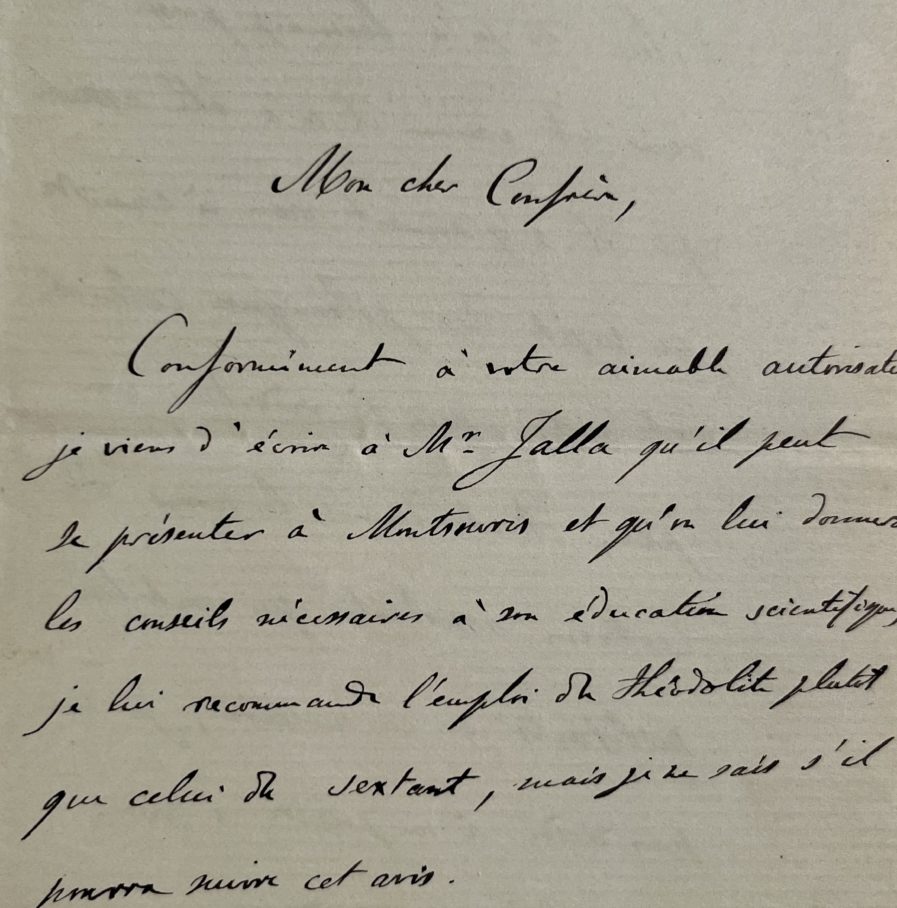 Mon cher Confrère,
Conformément à votre aimable autorisati
je viens d'écrire à Mr Jalla qu'il peut
se présenter à Montsouris et qu'on lui donnera
les conseils nécessaires à son éducation scientifique,
je lui recommande l'emploi du théodolite plutôt
que celui du sextant, mais je ne sais s'il
pourra suivre cet avis.